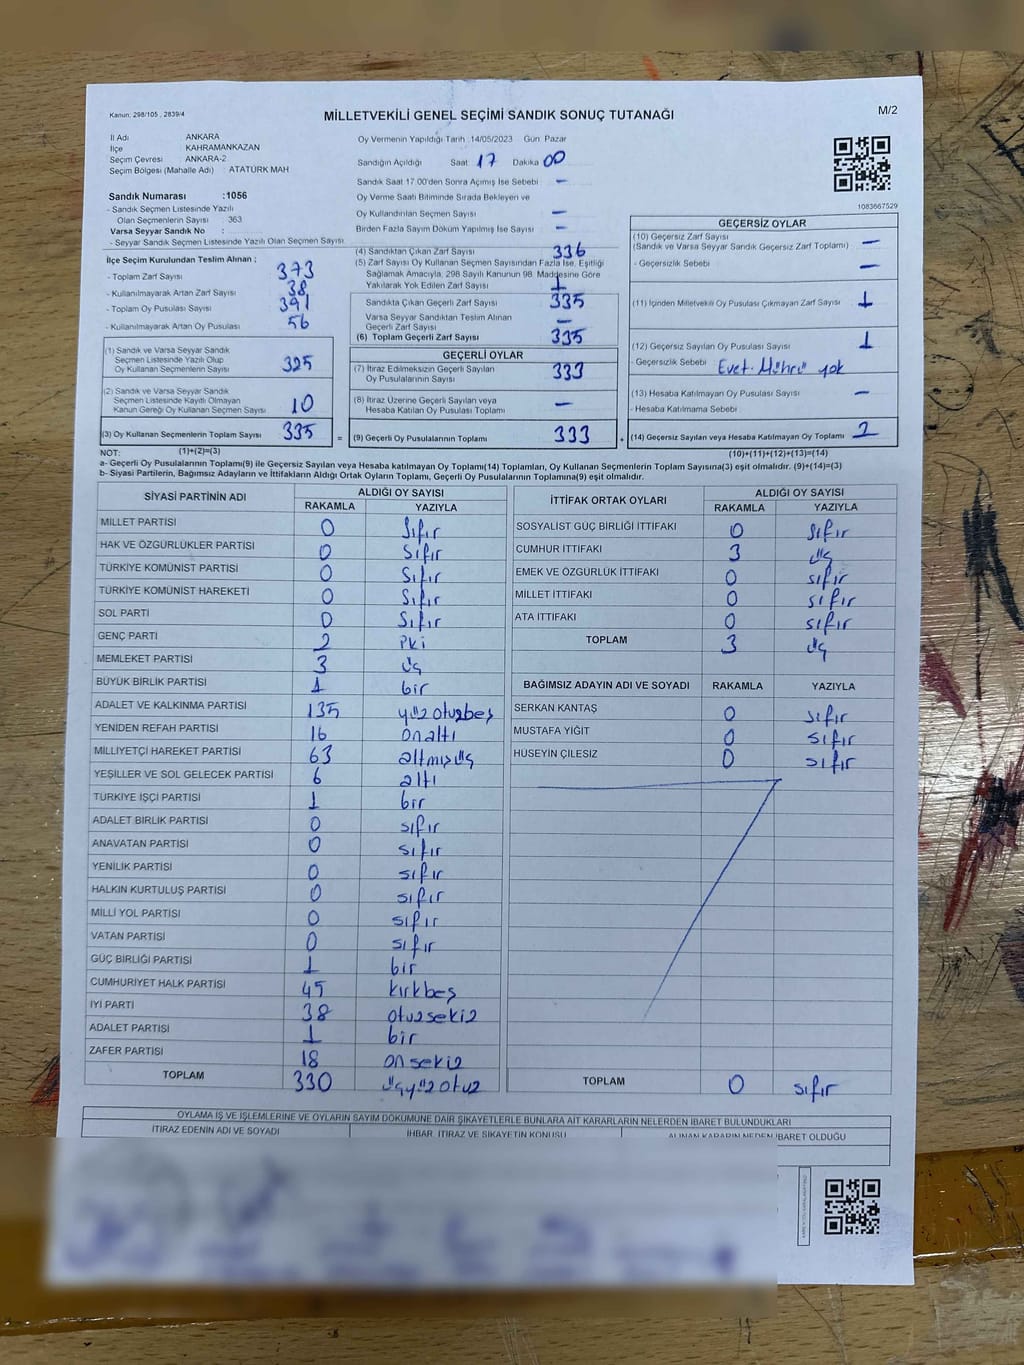 Kanun: 298/105 , 2839/4
MİLLETVEKİLİ GENEL SEÇİMİ SANDIK SONUÇ TUTANAĞI
M/2
İl Adı ANKARA
İlçe KAHRAMANKAZAN
Seçim Çevresi ANKARA-2
Seçim Bölgesi (Mahalle Adı) : ATATÜRK MAH
Sandık Numarası :1056
- Sandık Seçmen Listesinde Yazılı
Olan Seçmenlerin Sayısı 363
Varsa Seyyar Sandık No :
- Seyyar Sandık Seçmen Listesinde Yazılı Olan Seçmen Sayısı
İlçe Seçim Kurulundan Teslim Alınan ;
- Toplam Zarf Sayısı 373
- Kullanılmayarak Artan Zarf Sayısı 38
- Toplam Oy Pusulası Sayısı 391
- Kullanılmayarak Artan Oy Pusulası 56
(1) Sandık ve Varsa Seyyar Sandık
Seçmen Listesinde Yazılı Olup
Oy Kullanan Seçmenlerin Sayısı 325
(2) Sandık ve Varsa Seyyar Sandık
Seçmen Listesinde Kayıtlı Olmayan
Kanun Gereği Oy Kullanan Seçmen Sayısı 10
(3) Oy Kullanan Seçmenlerin Toplam Sayısı 335 =
Oy Vermenin Yapıldığı Tarih :14/05/2023 Gün: Pazar
Sandığın Açıldığı Saat 17 Dakika 00
Sandık Saat 17.00'den Sonra Açımış İse Sebebi –
Oy Verme Saati Bitiminde Sırada Bekleyen ve
Oy Kullandırılan Seçmen Sayısı –
Birden Fazla Sayım Döküm Yapılmış İse Sayısı –
(4) Sandıktan Çıkan Zarf Sayısı 336
(5) Zarf Sayısı Oy Kullanan Seçmen Sayısından Fazla İse, Eşitliği
Sağlamak Amacıyla, 298 Sayılı Kanunun 98. Maddesine Göre
Yakılarak Yok Edilen Zarf Sayısı 1
Sandıkta Çıkan Geçerli Zarf Sayısı 335
Varsa Seyyar Sandıktan Teslim Alınan
Geçerli Zarf Sayısı –
(6) Toplam Geçerli Zarf Sayısı 335
GEÇERLİ OYLAR
(7) İtiraz Edilmeksizin Geçerli Sayılan
Oy Pusulalarının Sayısı 333
(8) İtiraz Üzerine Geçerli Sayılan veya
Hesaba Katılan Oy Pusulası Toplamı –
(9) Geçerli Oy Pusulalarının Toplamı 333 +
1083667529
GEÇERSİZ OYLAR
(10) Geçersiz Zarf Sayısı
(Sandık ve Varsa Seyyar Sandık Geçersiz Zarf Toplamı) –
- Geçersizlik Sebebi –
(11) İçinden Milletvekili Oy Pusulası Çıkmayan Zarf Sayısı 1
(12) Geçersiz Sayılan Oy Pusulası Sayısı 1
- Geçersizlik Sebebi Evet Mührü yok
(13) Hesaba Katılmayan Oy Pusulası Sayısı –
- Hesaba Katılmama Sebebi
(14) Geçersiz Sayılan veya Hesaba Katılmayan Oy Toplamı 2
NOT: (1)+(2)=(3) (10)+(11)+(12)+(13)=(14)
a- Geçerli Oy Pusulalarının Toplamı(9) ile Geçersiz Sayılan veya Hesaba katılmayan Oy Toplamı(14) Toplamları, Oy Kullanan Seçmenlerin Toplam Sayısına(3) eşit olmalıdır. (9)+(14)=(3)
b- Siyasi Partilerin, Bağımsız Adayların ve İttifakların Aldığı Ortak Oyların Toplamı, Geçerli Oy Pusulalarının Toplamına(9) eşit olmalıdır.
SİYASİ PARTİNİN ADI ALDIĞI OY SAYISI
RAKAMLA YAZIYLA
MİLLET PARTİSİ 0 Sıfır
HAK VE ÖZGÜRLÜKLER PARTİSİ 0 Sıfır
TÜRKİYE KOMÜNİST PARTİSİ 0 Sıfır
TÜRKİYE KOMÜNİST HAREKETİ 0 Sıfır
SOL PARTİ 0 Sıfır
GENÇ PARTİ 2 İki
MEMLEKET PARTİSİ 3 üç
BÜYÜK BİRLİK PARTİSİ 1 bir
ADALET VE KALKINMA PARTİSİ 135 yüzotuzbeş
YENİDEN REFAH PARTİSİ 16 onaltı
MİLLİYETÇİ HAREKET PARTİSİ 63 altmışüç
YEŞİLLER VE SOL GELECEK PARTİSİ 6 altı
TÜRKİYE İŞÇİ PARTİSİ 1 bir
ADALET BİRLİK PARTİSİ 0 sıfır
ANAVATAN PARTİSİ 0 sıfır
YENİLİK PARTİSİ 0 sıfır
HALKIN KURTULUŞ PARTİSİ 0 sıfır
MİLLİ YOL PARTİSİ 0 sıfır
VATAN PARTİSİ 0 sıfır
GÜÇ BİRLİĞİ PARTİSİ 1 bir
CUMHURİYET HALK PARTİSİ 45 kırkbeş
İYİ PARTİ 38 otuzsekiz
ADALET PARTİSİ 1 bir
ZAFER PARTİSİ 18 onsekiz
TOPLAM 330 üçyüzotuz
İTTİFAK ORTAK OYLARI ALDIĞI OY SAYISI
RAKAMLA YAZIYLA
SOSYALİST GÜÇ BİRLİĞİ İTTİFAKI 0 sıfır
CUMHUR İTTİFAKI 3 üç
EMEK VE ÖZGÜRLÜK İTTİFAKI 0 sıfır
MİLLET İTTİFAKI 0 sıfır
ATA İTTİFAKI 0 sıfır
TOPLAM 3 üç
BAĞIMSIZ ADAYIN ADI VE SOYADI RAKAMLA YAZIYLA
SERKAN KANTAŞ 0 sıfır
MUSTAFA YİĞİT 0 sıfır
HÜSEYİN ÇİLESİZ 0 sıfır
TOPLAM 0 sıfır
OYLAMA İŞ VE İŞLEMLERİNE VE OYLARIN SAYIM DÖKÜMÜNE DAİR ŞİKAYETLERLE BUNLARA AİT KARARLARIN NELERDEN İBARET BULUNDUKLARI
İTİRAZ EDENİN ADI VE SOYADI İHBAR, İTİRAZ VE ŞİKAYETİN KONUSU ALINAN KARARIN NEDEN İBARET OLDUĞU